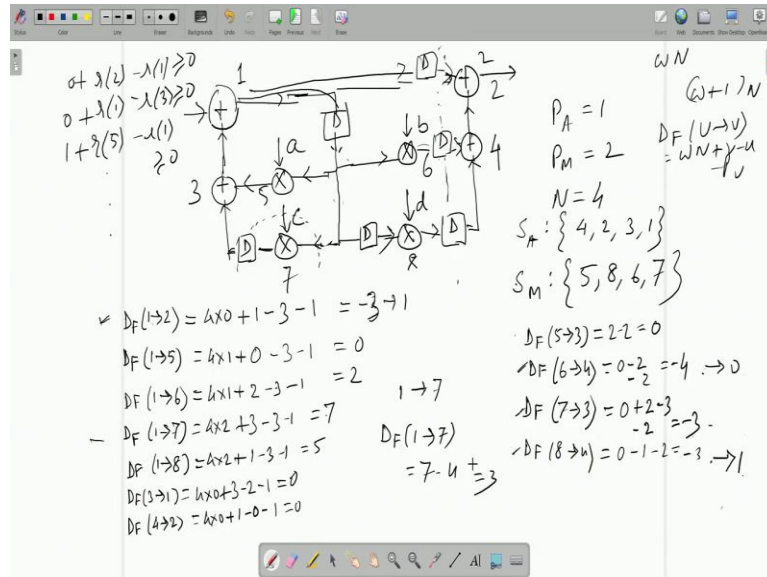 Stylus
Color
Line
Eraser
Backgrounds
Undo
Redo
Pages
Previous
Next
Erase
Board
Web
Documents
Show Desktop
0+r(2)-r(1)≥0
0+r(1)-r(3)≥0
1+r(5)-r(1)
≥0
1
D
2
2
+
+
D
a
b
3
+
5
X
X
6
D
+
4
c
d
D
X
D
X
D
7
8
ωN
(ω+1)N
D_F(U→V)
=ωN+γ-u
-Pu
P_A=1
P_M=2
N=4
S_A:{4,2,3,1}
S_M:{5,8,6,7}
D_F(1→2)=4x0+1-3-1=-3→1
D_F(1→5)=4x1+0-3-1=0
D_F(1→6)=4x1+2-3-1=2
- D_F(1→7)=4x2+3-3-1=7
D_F(1→8)=4x2+1-3-1=5
D_F(3→1)=4x0+3-2-1=0
D_F(4→2)=4x0+1-0-1=0
1→7
D_F(1→7)
=7-4
=3
D_F(5→3)=2-2=0
D_F(6→4)=0-2-2=-4 .→0
D_F(7→3)=0+2-3-2=-3.
D_F(8→4)=0-1-2=-3 .→1